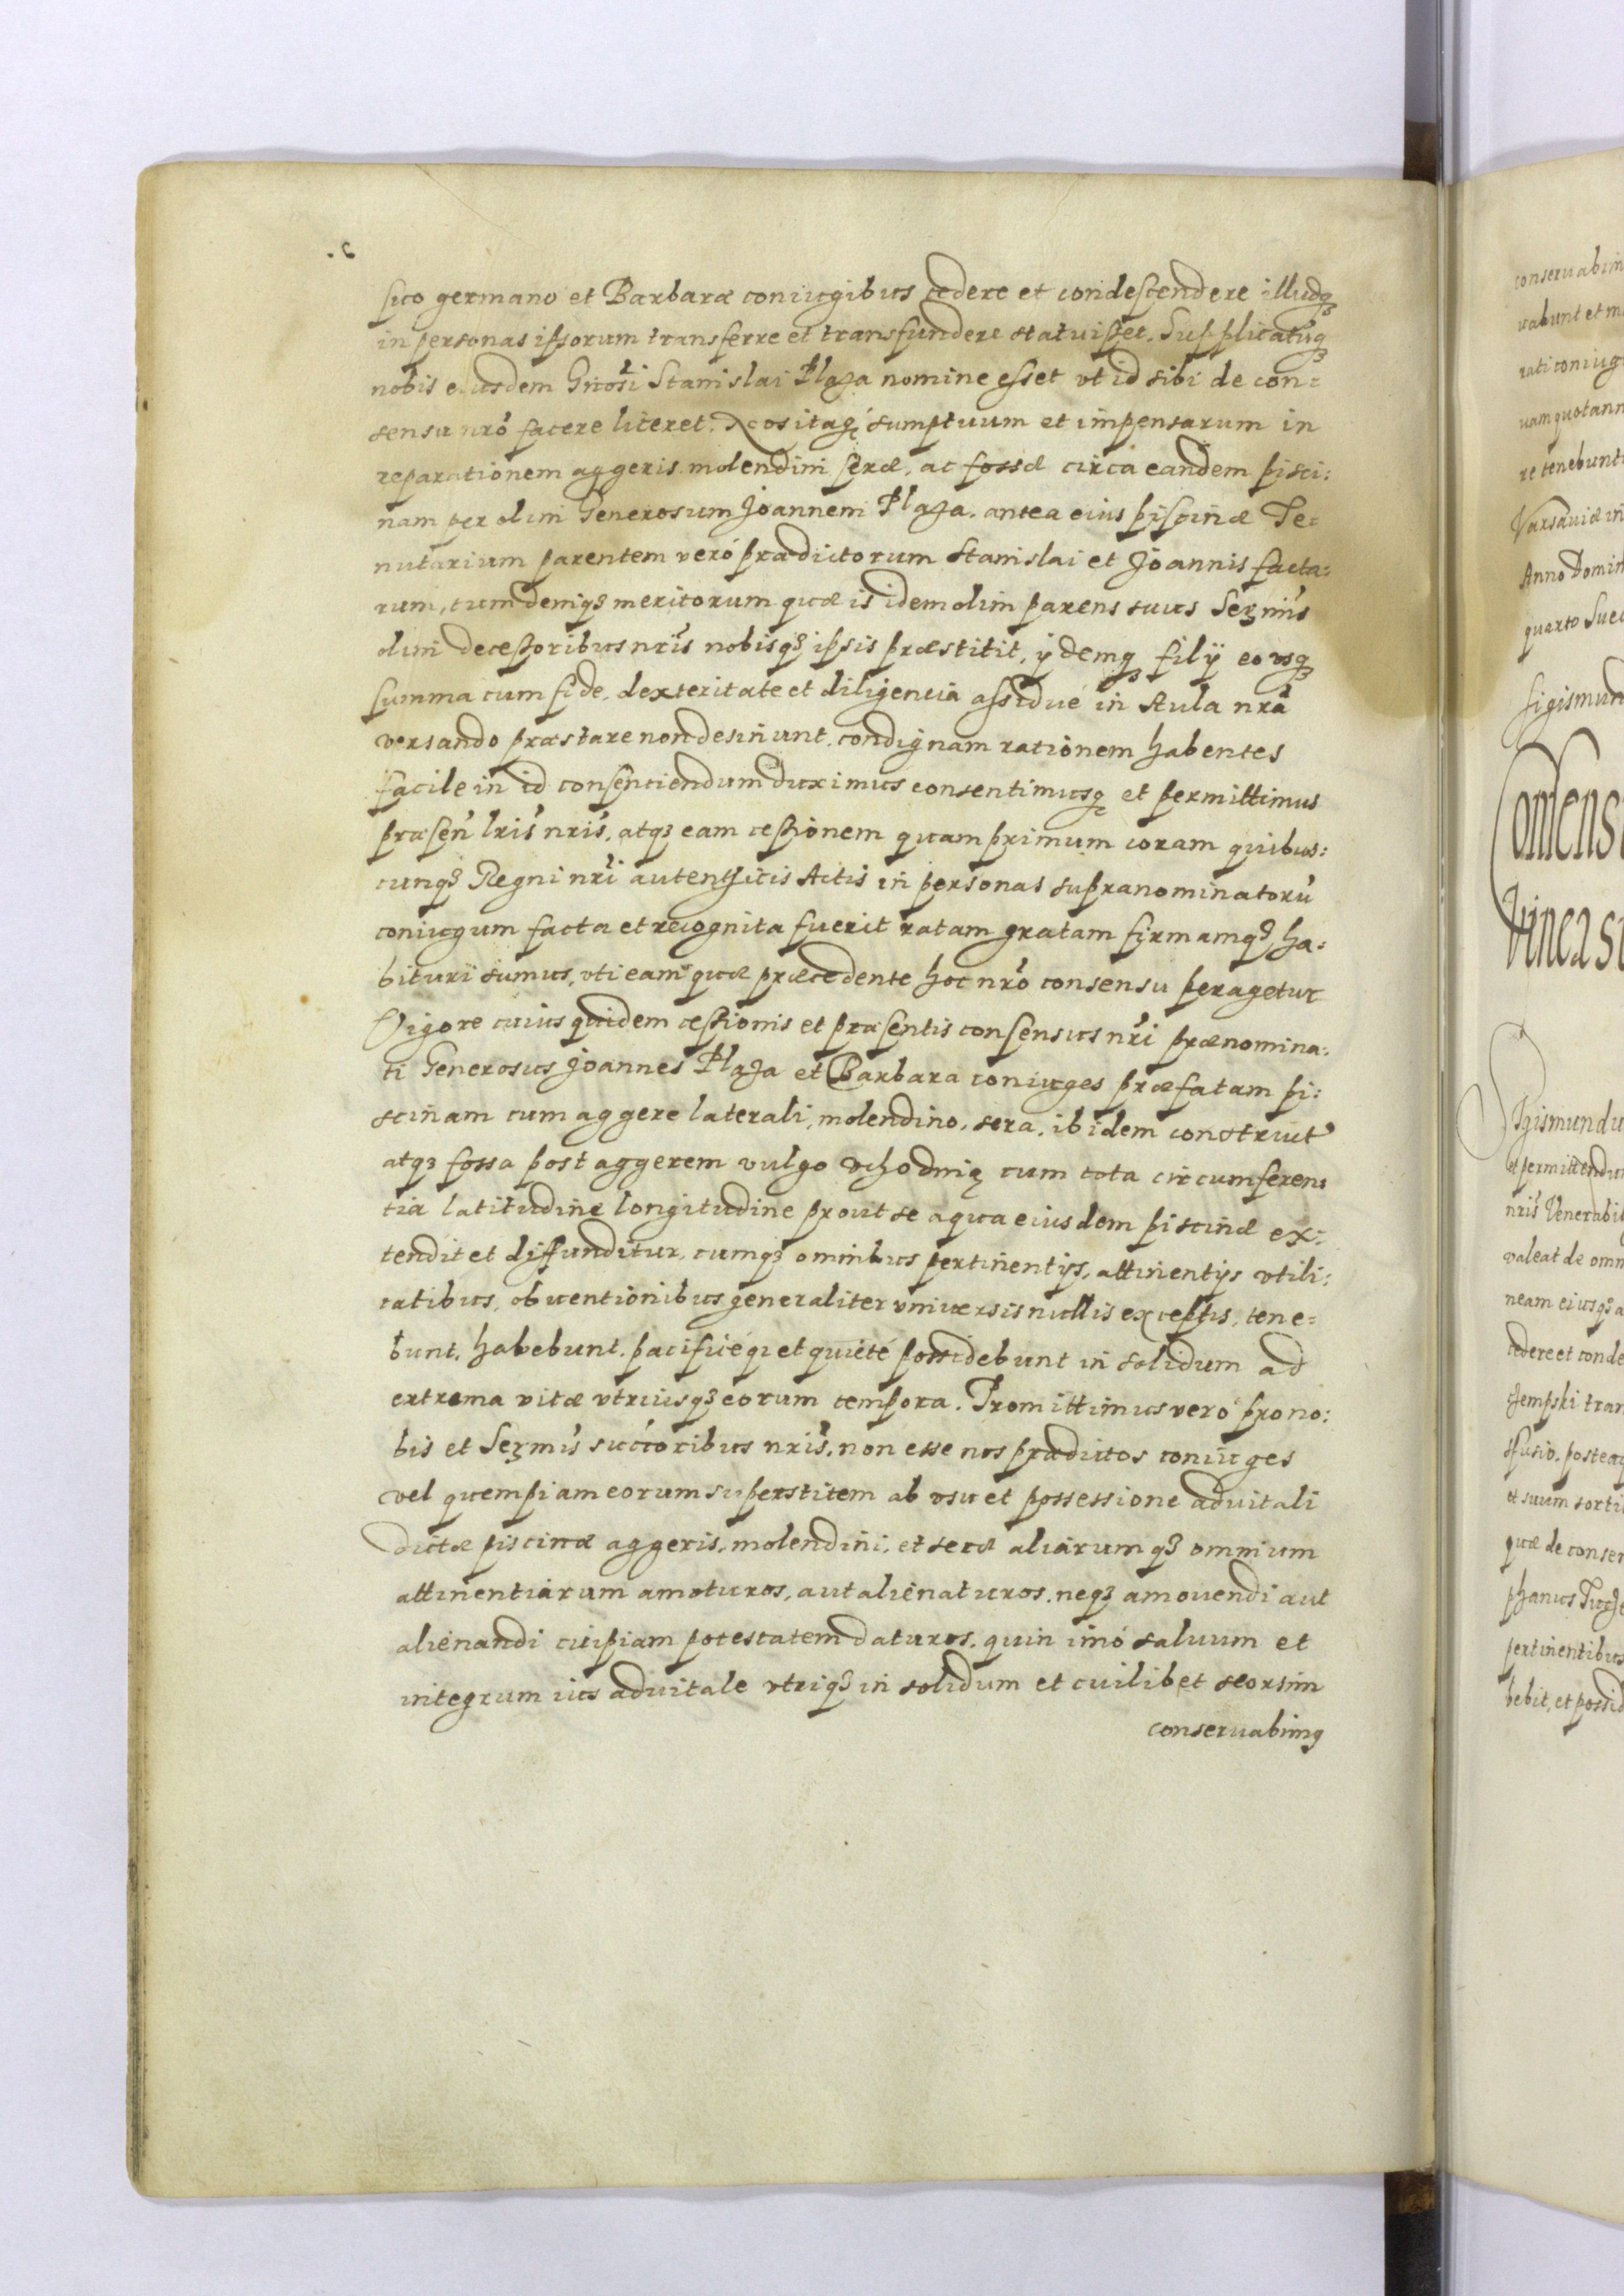 suo germano et Barbaræ coniugibus cedere et condescendere illudq3
in personas ipsorum transferre et transfundere statuisset. Supplicatūq3
nobis eiusdem Gnosi Stanislai Plaza nomine esset vt id sibi de con=
sensu nrō facere liceret. itaq3 sumptuum et impensarum in
reparationem aggeris molendini seræ, ac fossæ circa eandem pisci:
nam per olim Generosum Joannem Plaza. antea eius piscinæ Te=
nutarium parentem verò prædictorum Stanislai et Joannis facta:
rum, tum deniq3 meritorum quæ is idem olim parens suus Serm̄is
olim decessoribus nrīs nobisq3 ipsis præstitit, ijdemq3 filij eo vsq3
summa cum fide, dexteritate et diligencia assiduè in Aula nrā
versando præstare non desinunt, condignam rationem habentes
facile in id consenciendum duximus consentimusq3 et permittimus
præsen̄ lrīs nrīs, atq3 eam cessionem quam primum coram quibus:
cunq3 Regni nrī autenthicis Actis in personas supranominatorū
coniugum facta et recognita fuerit ratam gratam firmamq3 ha:
bituri sumus, vti eam quæ præcedente hoc nrō consensu peragetur
Vigore cuius quidem cessionis et præsentis consensus nrī prænomina:
ti Generosus Joannes Plaza et Barbara coniuges præfatam pi:
scinam cum aggere laterali, molendino, sera, ibidem construct
atq3 fossa post aggerem vulgo vchodnię cum tota circumferen:
tia latitudine longitudine prout se aqua eiusdem piscinæ ex:
tendit et diffunditur, cumq3 omnibus pertinentijs, attinentijs vtili:
tatibus, obuentionibus generaliter vniuersis nullis exceptis, tene=
bunt, habebunt, pacificéq3 et quietè possidebunt in solidum ad
extrema vitæ vtriusq3 eorum tempora. Promittimus verò pro no:
bis et Serm̄is succ̄oribus nrīs, non esse nos prædictos coniuges
vel quempiam eorum superstitem ab vsu et possessione aduitali
dictæ piscinæ aggeris, molendini, et seræ aliarumq3 omnium
attinentiarum amoturos, aut alienaturos, neq3 amouendi aut
alienandi cuipiam potestatem daturos, quin imó saluum et
integrum ius aduitale vtriq3 in solidum et cuilibet seorsim
conseruabimq